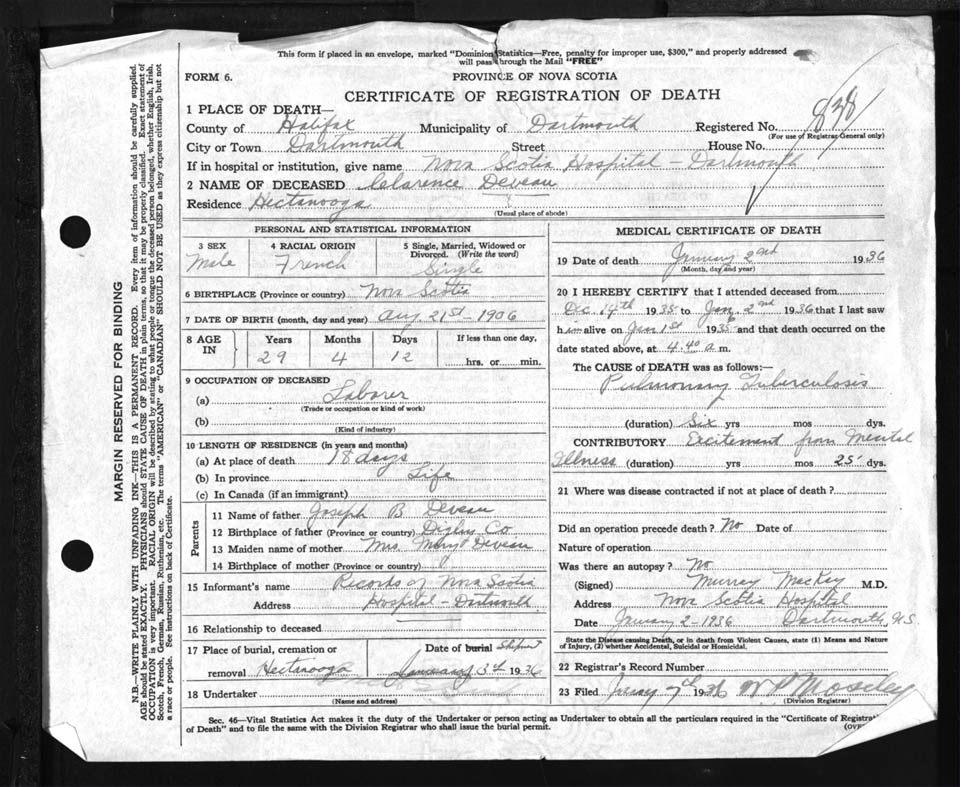 This form if placed in an envelope, marked "Dominion Statistics—Free, penalty for improper use, $300," and properly addressed
will pass through the Mail "FREE"
FORM 6.
PROVINCE OF NOVA SCOTIA
CERTIFICATE OF REGISTRATION OF DEATH
1 PLACE OF DEATH—
County of Halifax Municipality of Dartmouth Registered No. 838
(For use of Registrar General only)
City or Town Dartmouth Street House No.
If in hospital or institution, give name Nova Scotia Hospital - Dartmouth
2 NAME OF DECEASED Clarence Deveau
Residence Hectanooga
(Usual place of abode)
PERSONAL AND STATISTICAL INFORMATION
3 SEX
Male
4 RACIAL ORIGIN
French
5 Single, Married, Widowed or
Divorced. (Write the word)
Single
6 BIRTHPLACE (Province or country) Nova Scotia
7 DATE OF BIRTH (month, day and year) Aug. 21st - 1906
8 AGE IN
Years Months Days If less than one day,
29 4 12 hrs. or min.
9 OCCUPATION OF DECEASED
(a) Laborer
(Trade or occupation or kind of work)
(b)
(Kind of industry)
10 LENGTH OF RESIDENCE (in years and months)
(a) At place of death 18 days
(b) In province Life
(c) In Canada (if an immigrant)
Parents
11 Name of father Joseph B. Deveau
12 Birthplace of father (Province or country) Digby Co
13 Maiden name of mother Mrs. Mary Deveau
14 Birthplace of mother (Province or country)
15 Informant's name Records of Nova Scotia
Address Hospital - Dartmouth
16 Relationship to deceased
17 Place of burial, cremation or Date of burial
removal Hectanooga January 3rd 1936
18 Undertaker
(Name and address)
MEDICAL CERTIFICATE OF DEATH
19 Date of death January 2nd 1936
(Month, day and year)
20 I HEREBY CERTIFY that I attended deceased from
Dec. 14th 1935 to Jan. 2nd 1936 that I last saw
him alive on Jan 1st 1936 and that death occurred on
date stated above, at 4.40 a m.
The CAUSE of DEATH was as follows:—
Pulmonary Tuberculosis
(duration) Six yrs mos dys.
CONTRIBUTORY Excitement from Mental
Illness (duration) yrs mos 25 dys.
21 Where was disease contracted if not at place of death?
Did an operation precede death? No Date of
Nature of operation
Was there an autopsy? No
(Signed) Murray MacKay M.D.
Address Nova Scotia Hospital
Date January 2 - 1936 Dartmouth, N.S.
State the Disease causing Death, or in death from Violent Causes, state (1) Means and Nature
of Injury, (2) whether Accidental, Suicidal or Homicidal.
22 Registrar's Record Number
23 Filed 7th 1936 W P Moseley
(Division Registrar)
Sec. 46—Vital Statistics Act makes it the duty of the Undertaker or person acting as Undertaker to obtain all the particulars required in the "Certificate of Registration
of Death" and to file the same with the Division Registrar who shall issue the burial permit. (OVER
MARGIN RESERVED FOR BINDING
N.B.—WRITE PLAINLY WITH UNFADING INK—THIS IS A PERMANENT RECORD. Every item of information should be carefully supplied.
AGE should be stated EXACTLY. PHYSICIANS should STATE CAUSE OF DEATH in plain terms, so that it may be properly classified. Exact statement of
OCCUPATION is very important. RACIAL ORIGIN will be described by stating to what people or tongue the deceased person belonged, whether English, Irish,
Scotch, French, German, Russian, Ruthenian, etc. The terms "AMERICAN" or "CANADIAN" SHOULD NOT BE USED as they express citizenship but not
a race or people. See instructions on back of Certificate.